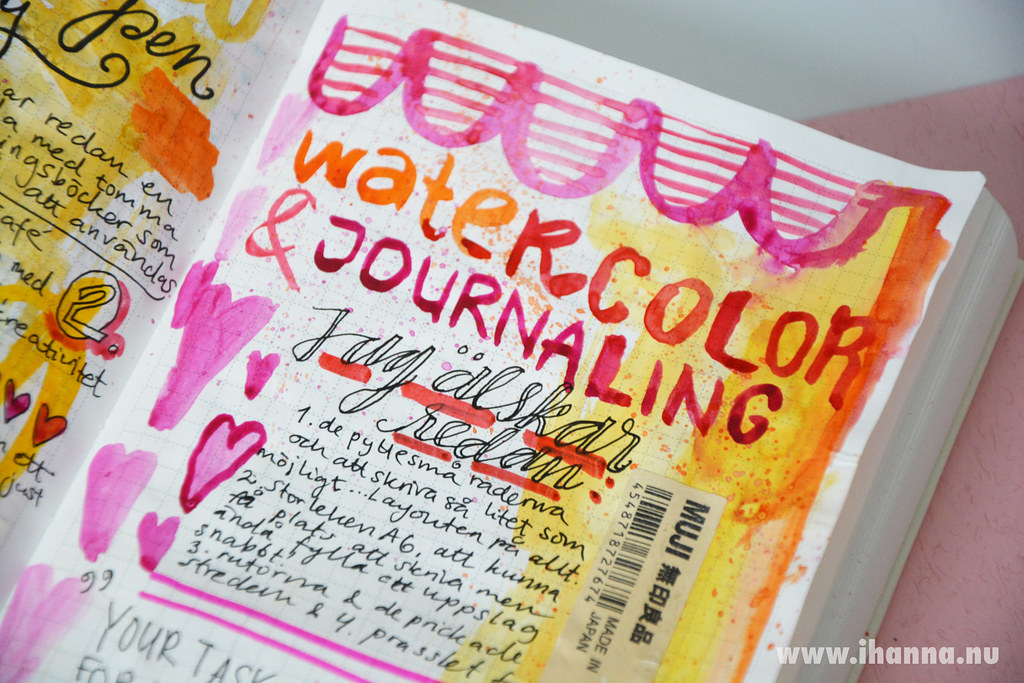 pen
ar redan en
a med tomma
ingsböcker som
att användas
afé
med
2.
creativitet
ett
just
watercolor
& JOURNALING
Jag älskar
redan:
1. de pyttesmå raderna
och att skriva så litet som
möjligt... Layouten på allt.
2. Storleken A6, att kunna
få plats att skriva men
ändå fylla ett uppslag
snabbt!
3. rutorna & de prickade
strecken & 4. prasslet
99
YOUR TASK
FOR
MUJI 無印良品
4548718727674 MADE IN JAPAN
www.ihanna.nu